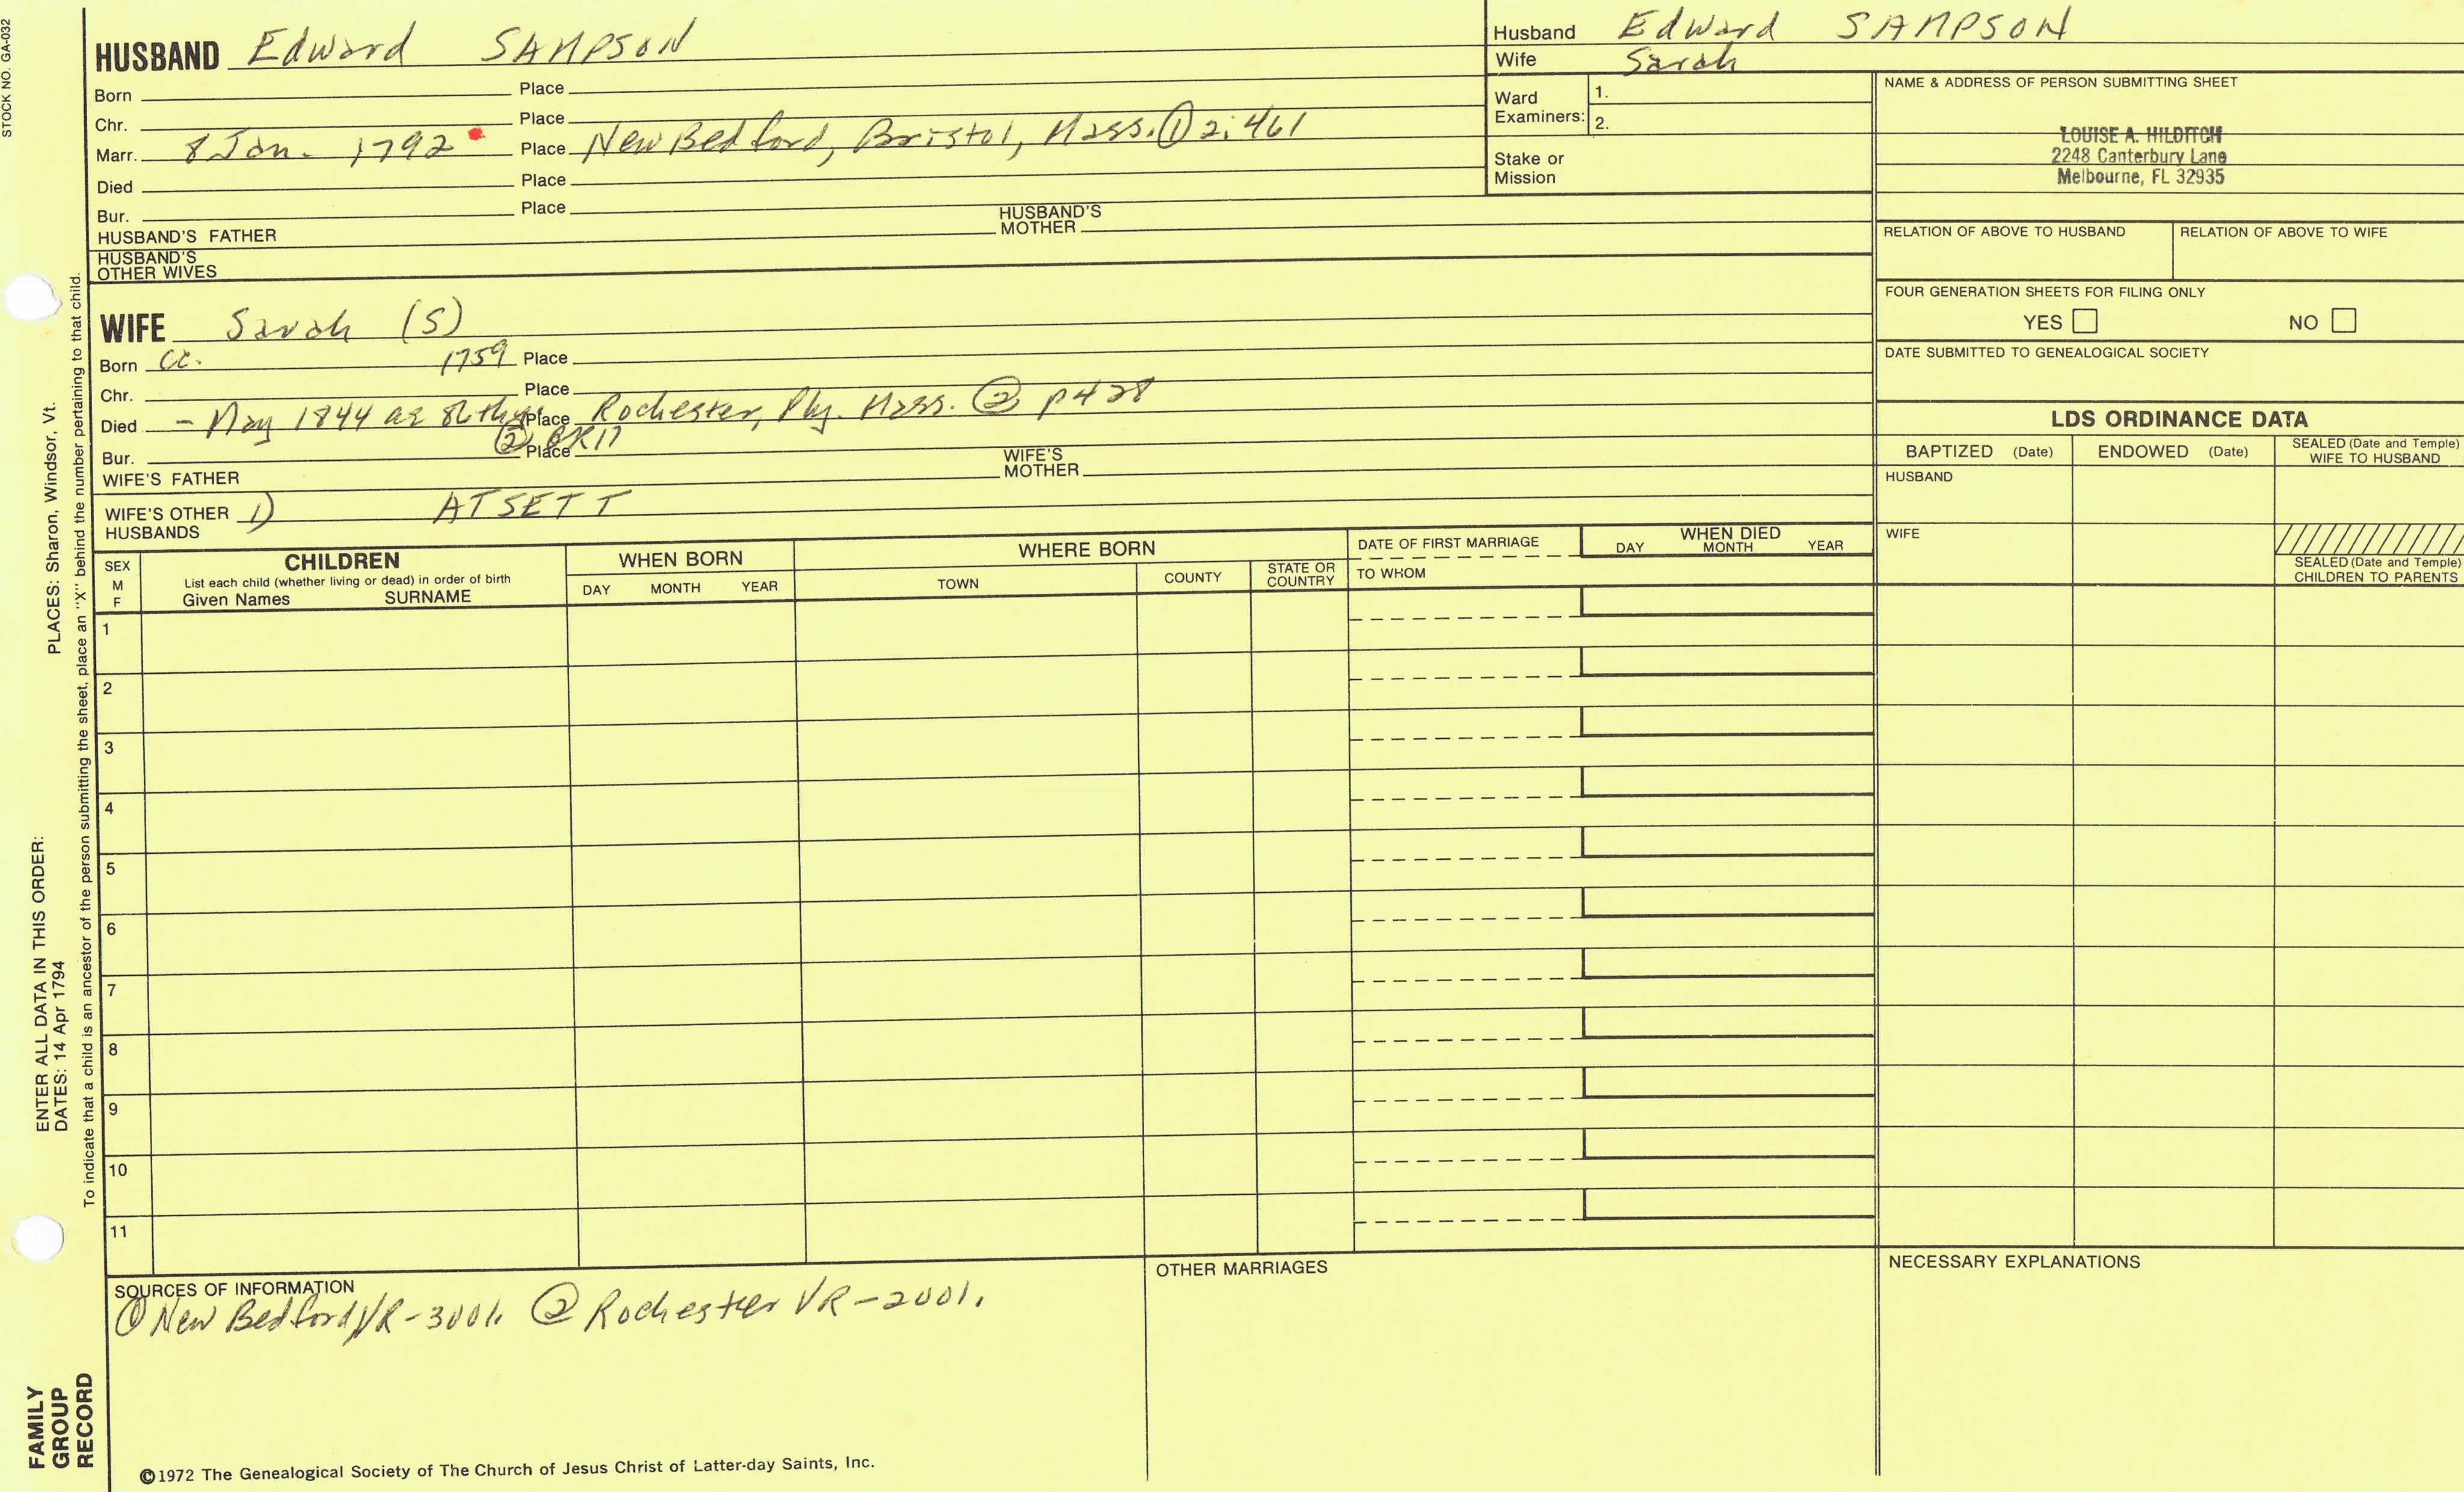 STOCK NO. GA-032
HUSBAND Edward SAMPSON
Born Place
Chr. Place
Marr. 8 Jan. 1792 Place New Bedford, Bristol, Mass. ① 2:461
Died Place
Bur. Place
HUSBAND'S FATHER HUSBAND'S MOTHER
HUSBAND'S OTHER WIVES
Husband Edward SAMPSON
Wife Sarah
Ward Examiners: 1.
2.
Stake or Mission
NAME & ADDRESS OF PERSON SUBMITTING SHEET
LOUISE A. HILDITCH
2248 Canterbury Lane
Melbourne, FL 32935
RELATION OF ABOVE TO HUSBAND RELATION OF ABOVE TO WIFE
FOUR GENERATION SHEETS FOR FILING ONLY
YES NO
DATE SUBMITTED TO GENEALOGICAL SOCIETY
WIFE Sarah (S)
Born ca. 1759 Place
Chr. Place
Died - May 1844 ae 86thyr Place Rochester, Ply. Mass. ② p428
② GR17
Bur. Place
WIFE'S FATHER WIFE'S MOTHER
WIFE'S OTHER HUSBANDS 1) ATSETT
LDS ORDINANCE DATA
BAPTIZED (Date) ENDOWED (Date) SEALED (Date and Temple) WIFE TO HUSBAND
HUSBAND
WIFE
SEALED (Date and Temple) CHILDREN TO PARENTS
SEX M F
CHILDREN
List each child (whether living or dead) in order of birth
Given Names SURNAME
WHEN BORN
DAY MONTH YEAR
WHERE BORN
TOWN COUNTY STATE OR COUNTRY
DATE OF FIRST MARRIAGE
TO WHOM
WHEN DIED
DAY MONTH YEAR
1
2
3
4
5
6
7
8
9
10
11
SOURCES OF INFORMATION
① New Bedford VR-3001. ② Rochester VR-2001.
OTHER MARRIAGES
NECESSARY EXPLANATIONS
©1972 The Genealogical Society of The Church of Jesus Christ of Latter-day Saints, Inc.
FAMILY GROUP RECORD
ENTER ALL DATA IN THIS ORDER:
DATES: 14 Apr 1794
PLACES: Sharon, Windsor, Vt.
To indicate that a child is an ancestor of the person submitting the sheet, place an "X" behind the number pertaining to that child.